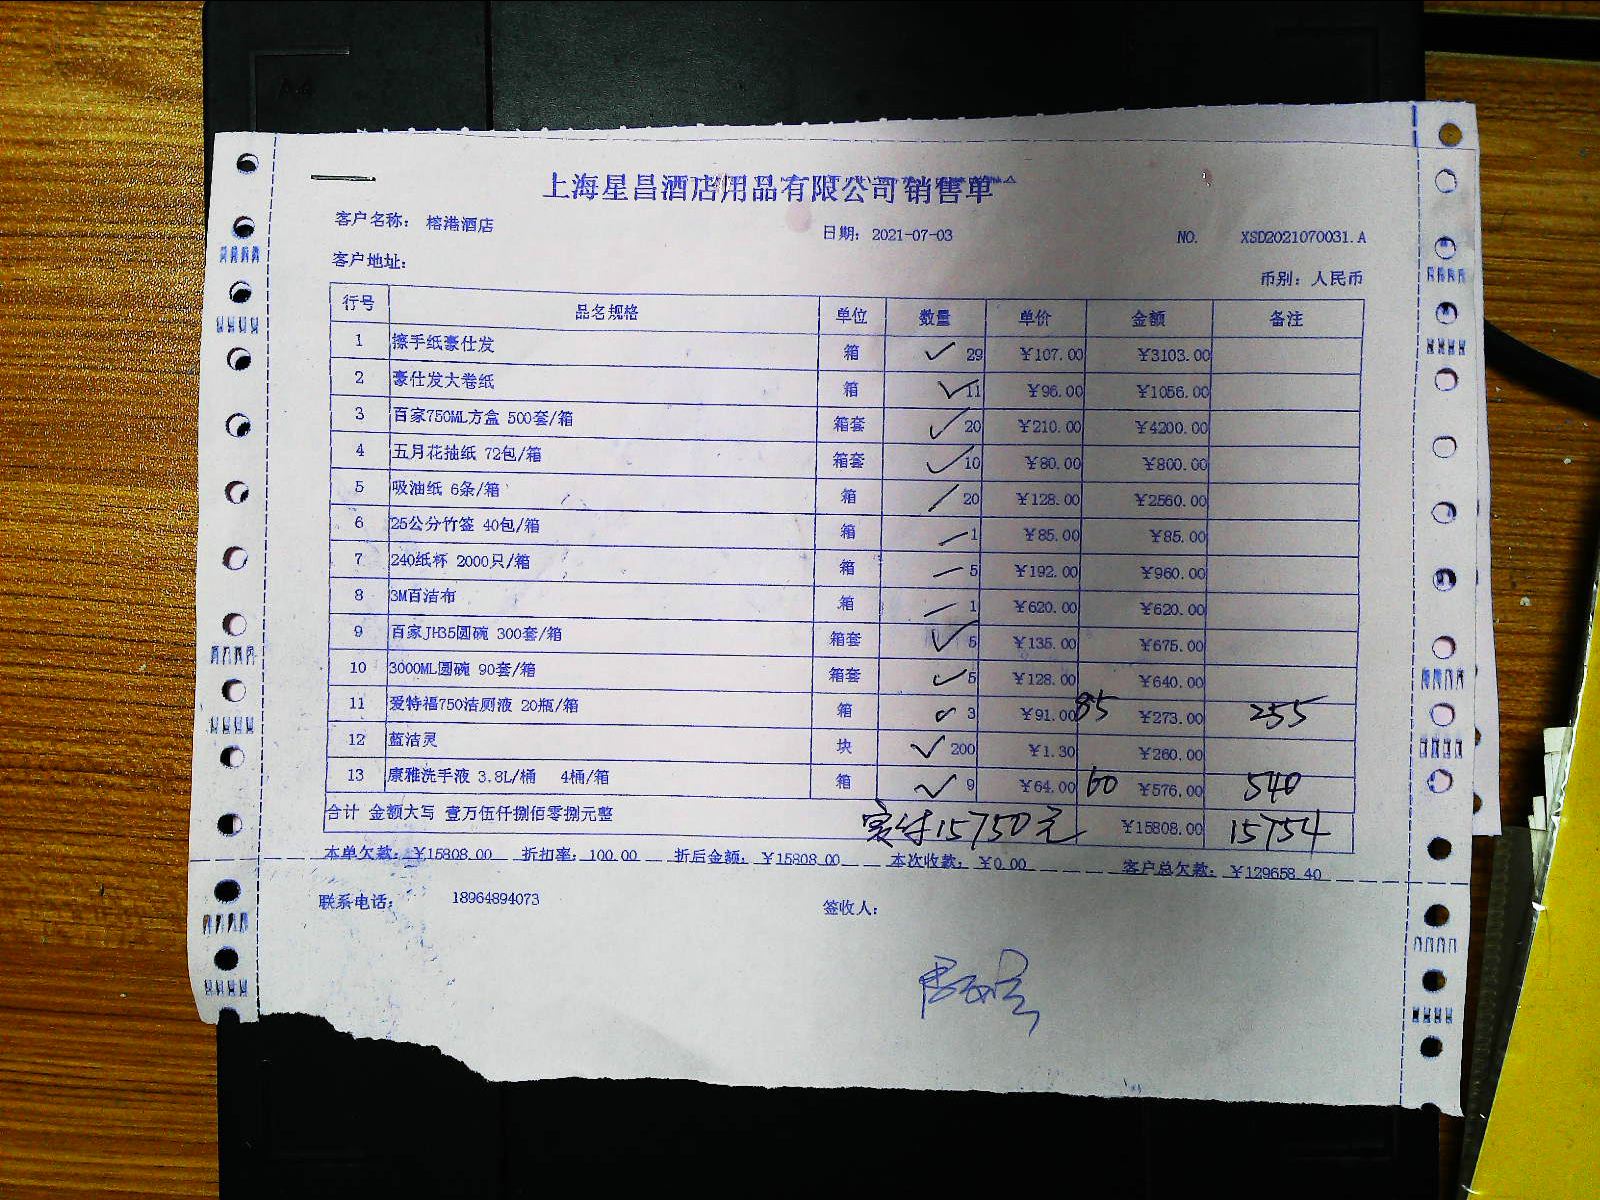 上海星昌酒店用品有限公司 销售单
客户名称： 榕港酒店 日期： 2021-07-03 NO. XSD2021070031.A
客户地址： 币别： 人民币
行号 品名规格 单位 数量 单价 金额 备注
1 擦手纸豪仕发 箱 29 ￥107.00 ￥3103.00
2 豪仕发大卷纸 箱 11 ￥96.00 ￥1056.00
3 百家750ML方盒 500套/箱 箱套 20 ￥210.00 ￥4200.00
4 五月花抽纸 72包/箱 箱套 10 ￥80.00 ￥800.00
5 吸油纸 6条/箱 箱 20 ￥128.00 ￥2560.00
6 25公分竹签 40包/箱 箱 1 ￥85.00 ￥85.00
7 240纸杯 2000只/箱 箱 5 ￥192.00 ￥960.00
8 3M百洁布 箱 1 ￥620.00 ￥620.00
9 百家JH35圆碗 300套/箱 箱套 5 ￥135.00 ￥675.00
10 3000ML圆碗 90套/箱 箱套 5 ￥128.00 ￥640.00
11 爱特福750洁厕液 20瓶/箱 箱 3 ￥91.00 85 ￥273.00 255
12 蓝洁灵 块 200 ￥1.30 ￥260.00
13 康雅洗手液 3.8L/桶 4桶/箱 箱 9 ￥64.00 60 ￥576.00 540
合计 金额大写 壹万伍仟捌佰零捌元整 实付15750元 ￥15808.00 15754
本单欠款： ￥15808.00 折扣率： 100.00 折后金额： ￥15808.00 本次收款： ￥0.00 客户总欠款： ￥129658.40
联系电话： 18964894073 签收人：